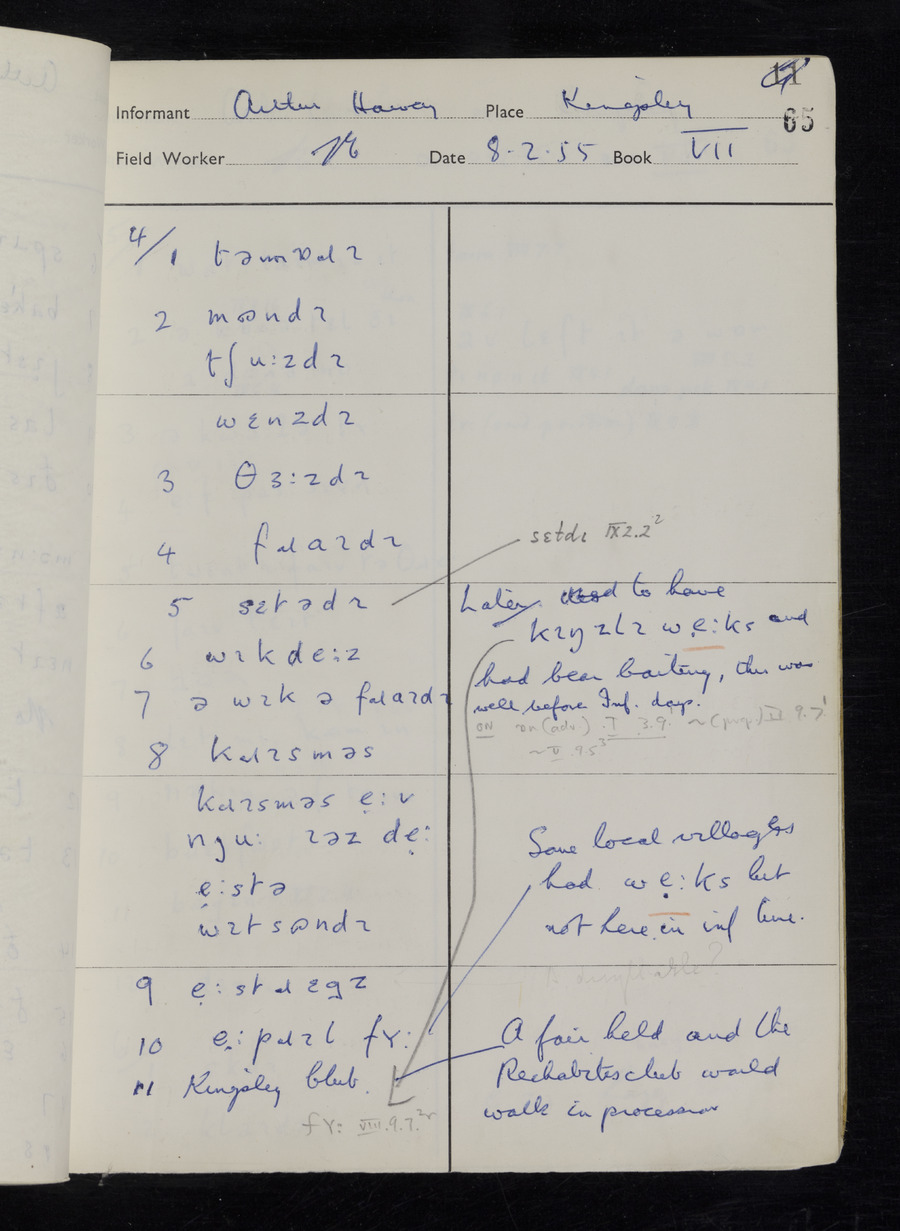 11
65
Informant Arthur Place Kingsley
Field Worker Date 8.2.55 Book VII
4/1 təmɒɹɪ
2 mɷndɪ
tʃu:zdɪ
wɛnzdɪ
3 θɜ:zdɪ
4 fɹaɪdɪ
setdɪ IX.2.2²
5 satədɪ
6 wɪkde̤:z
7 ə wɪk ə fɹaɪdɪ
8 kɹɪsməs
kɹɪsməs ẹ:v
nju: ɪəz dẹ:
ẹ:stə
wɪtsɷndɪ
9 ẹ:stəɹ ɛgz
10 ẹ:pɹɪl fʏ:
11 Kingsley Club.
fʏ: VIII.9.7.
Later used to have
kɪŋzlɪ wẹ:ks and
had bear baiting, this was
well before Inf. days.
ON ɒn (adv.) I 3.9. ~ (prep.) 9.7
~ V 9.5³
Some local villages
had wẹ:ks but
not here in inf time.
A fair held and the
Rechabites club would
walk in procession